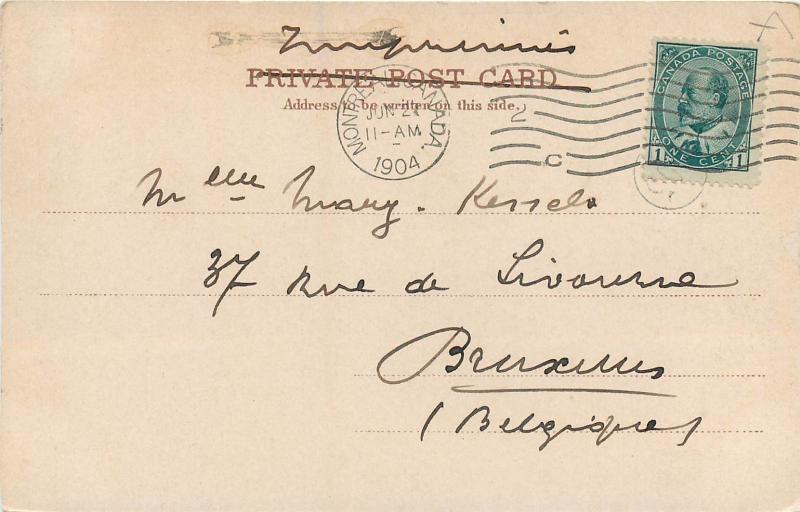 Imprimés
PRIVATE POST CARD
Address to be written on this side.
MONTREAL CANADA
JUN 2
11-AM
1904
2
C
CANADA POSTAGE
1 ONE CENT 1
X
Melle Mary. Kessels
37 Rue de Livourne
Bruxelles
(Belgique)